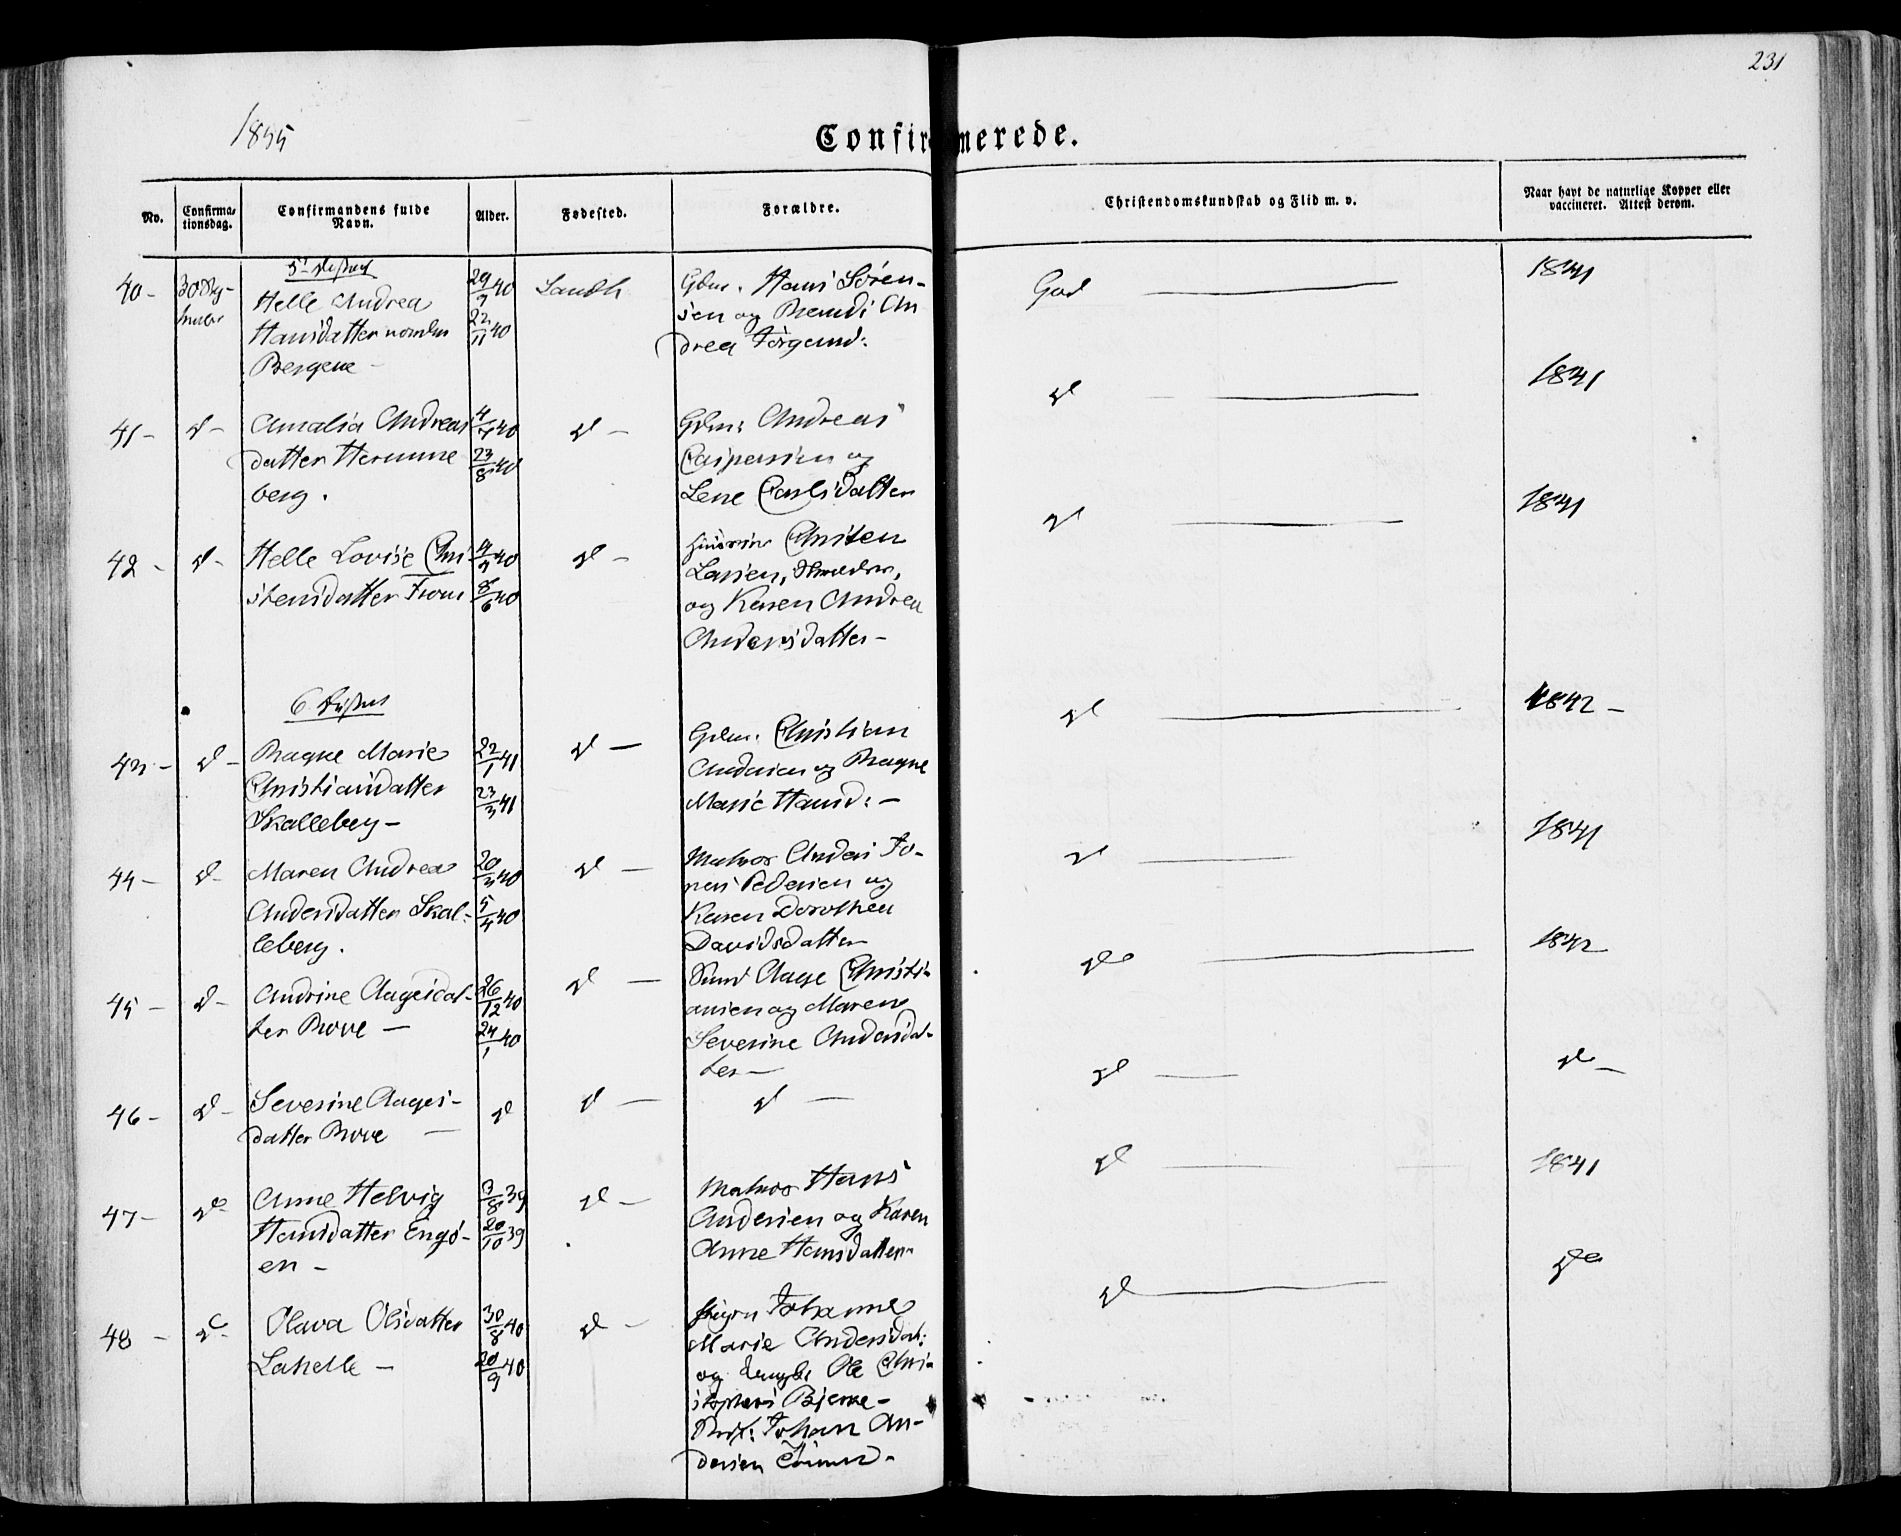 231
1855
Confirmerede.
No.
Confirma-
tionsdag.
Confirmandens fulde
Navn.
Alder.
Fødested.
Forældre.
Christendomskundskab og Flid m. v.
Naar havt de naturlige Kopper eller
vaccineret. Attest derom.
40-
Helle Andrea
Hansdatter nordre
Bergene -
29/9 40
22/11 40
Sandh
Gdm. Hans Søren-
sen og An
drea Jörgensd:
God
1841
41-
d-
Amalia Andreas
datter Hemme
berg.
4/7 40
23/8 40
d -
Gdm: Andreas
Caspersen og
Lene Carlsdatter
d
1841
42 -
d-
Helle Lovise Chri
stensdatter From
8/6 40
d -
Christen
Larsen,
og Karen Andrea
Andersdatter -
d
1841
6 District
43 -
d -
Ragne Marie
Christiansdatter
Skalleberg -
22/1 41
23/3 41
d -
Gdm. Christian
Andersen og Ragne
Marie Hansd: -
d
1842 -
44 -
d-
Maren Andrea
Andersdatter Skal-
leberg.
20/3 40
5/4 40
d -
Matros Anders Jo-
nas Pedersen og
Karen Dorothea
Davidsdatter
d
1841
45 -
d-
Andrine Aagesdat-
ter Rove -
26/12 40
24/1 40
d -
Aage Christi-
ansen og Maren
Severine Andersdat-
ter -
do
1842
46 -
d-
Severine Aages-
datter Rove -
d
d -
d -
d
d -
47 -
do
Anne Helvig
Hansdatter Engö-
en -
9/8 39
20/10 39
d -
Matros Hans
Andersen og Karen
Anne Hansdatter
d
1841
48 -
d-
Olava Olsdatter
Lahelle -
30/8 40
20/9 40
d -
Pigen Johanne
Marie Andersdat:
og Ole Chri-
stophers Bjerke -
Johan An-
dersen
d
do